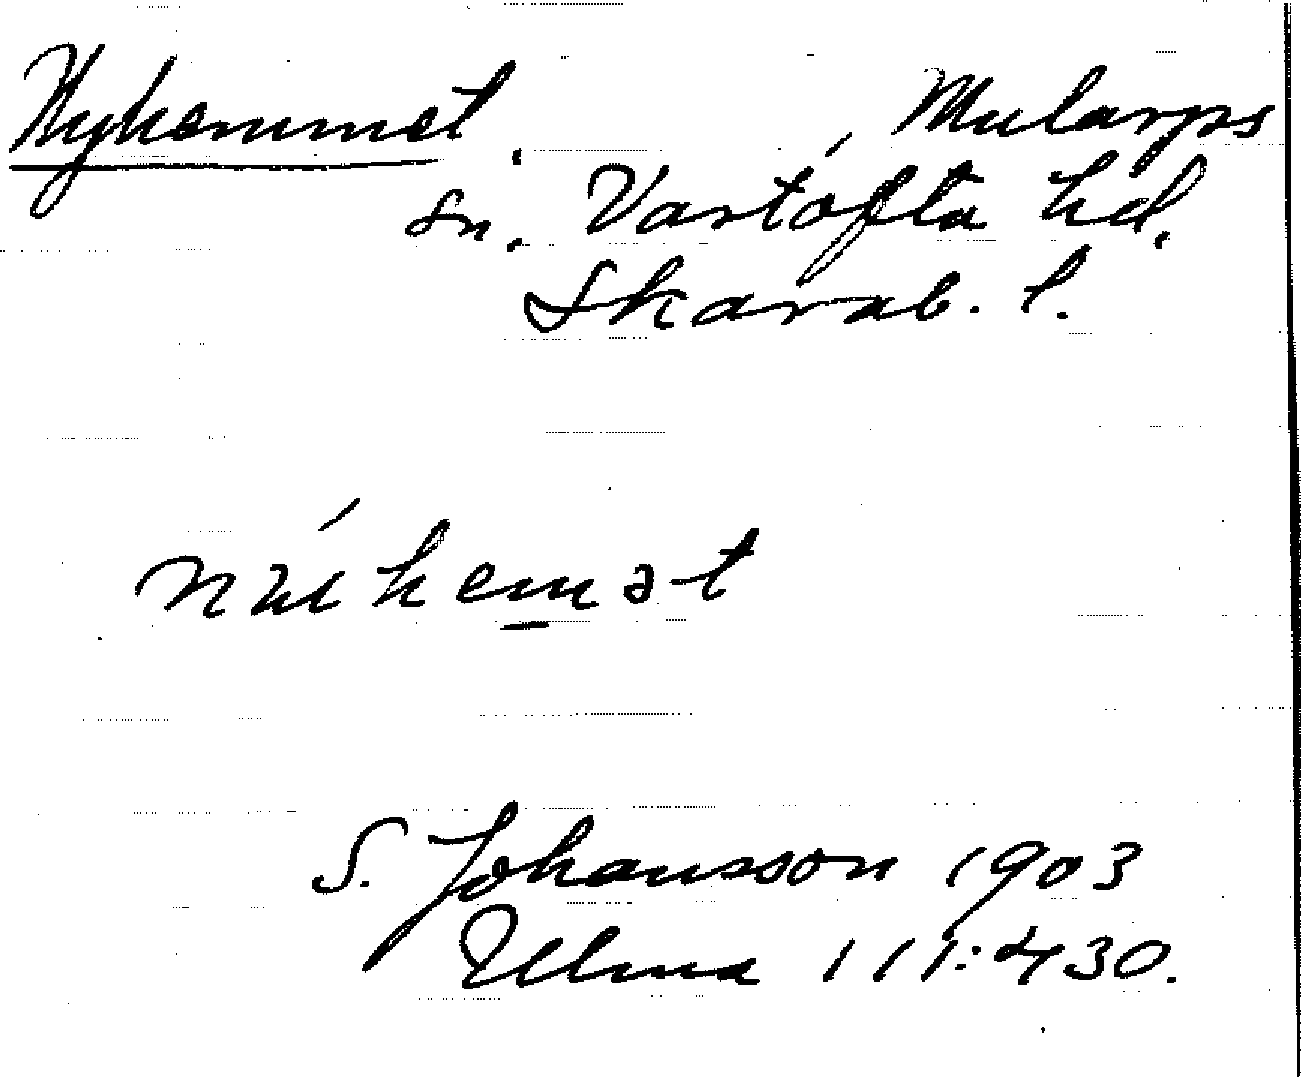 Nyhemmet, Mularps
sn. Vartofta hd.
Skarab. l.
S. Johansson 1903
Ulma 111:430.